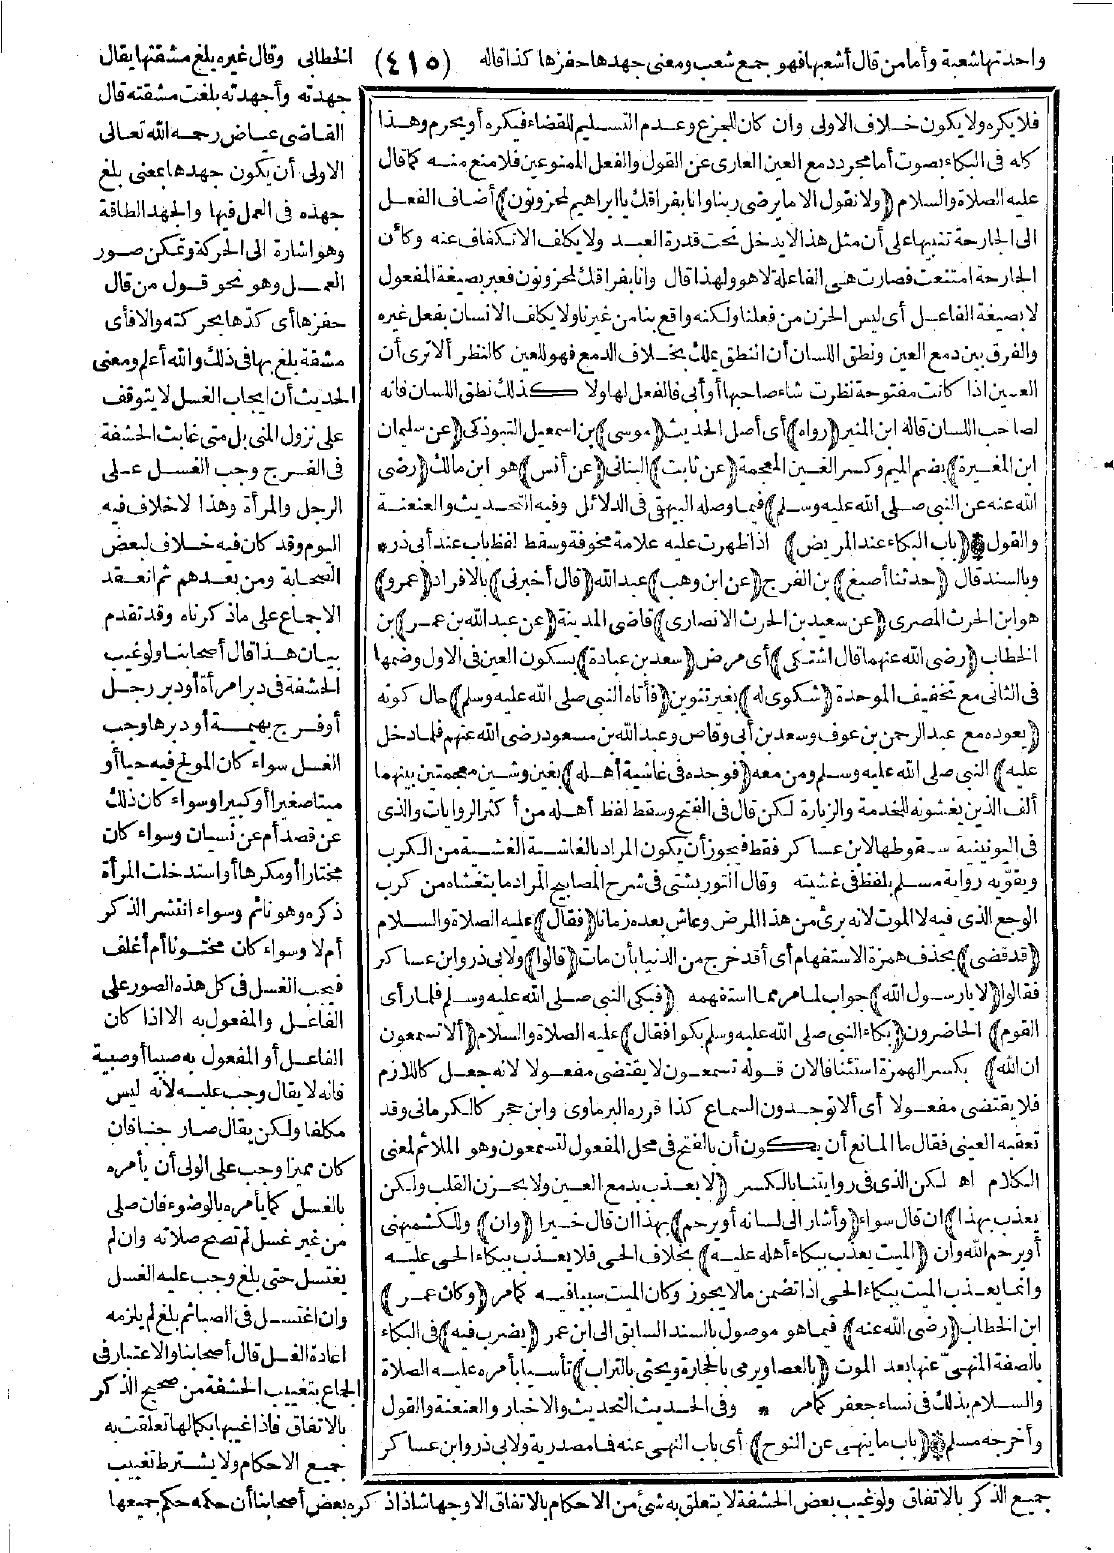 واحدتها شعبة وأما من قال أشعبها فهو جمع شعب ومعنى جهدها حفزها كذا قاله (٤١٥) الخطابي وقال غيره بلغ مشقتها يقال
فلا يكره ولا يكون خلاف الاولى وان كان للجزع وعدم التسليم للقضاء فيكره أو يحرم وهذا
كله فى البكاء بصوت أما مجرد دمع العين العارى عن القول والفعل الممنوعين فلا منع منه كما قال
عليه الصلاة والسلام (ولا نقول الا ما يرضى ربنا وانا بفراقك يا ابراهيم لمحزونون) أضاف الفعل
الى الجارحة تنبيها على أن مثل هذا لا يدخل تحت قدرة العبد ولا يكلف الانكفاف عنه وكأن
الجارحة امتنعت فصارت هى الفاعلة لا هو ولهذا قال وانا بفراقك لمحزونون فعبر بصيغة المفعول
لا بصيغة الفاعل أى ليس الحزن من فعلنا ولكنه واقع بنا من غيرنا ولا يكلف الانسان بفعل غيره
والفرق بين دمع العين ونطق اللسان أن النطق يملك بخلاف الدمع فهو للعين كالنظر ألا ترى أن
العين اذا كانت مفتوحة نظرت شاء صاحبها أو أبى فالفعل لها ولا كذلك نطق اللسان فانه
لصاحب اللسان قاله ابن المنير (رواه) أى أصل الحديث (موسى) بن اسمعيل التبوذكى (عن سلمان
ابن المغيرة) بضم الميم وكسر الغين المعجمة (عن ثابت) البنانى (عن أنس) هو ابن مالك (رضى
الله عنه عن النبى صلى الله عليه وسلم) فيما وصله البيهقى فى الدلائل وفيه التحديث والعنعنة
والقول (باب البكاء عند المريض) اذا ظهرت عليه علامة مخوفة وسقط لفظ باب عند أبى ذر *
وبالسند قال (حدثنا أصبغ) بن الفرج (عن ابن وهب) عبد الله (قال أخبرنى) بالافراد (عمرو)
هو ابن الحرث المصرى (عن سعيد بن الحرث الانصارى) قاضى المدينة (عن عبد الله بن عمر) بن
الخطاب (رضى الله عنهما قال اشتكى) أى مرض (سعد بن عبادة) بسكون العين فى الاول وضمها
فى الثانى مع تخفيف الموحدة (شكوى له) بغير تنوين (فأتاه النبى صلى الله عليه وسلم) حال كونه
(يعوده مع عبد الرحمن بن عوف وسعد بن أبى وقاص وعبد الله بن مسعود رضى الله عنهم فلما دخل
عليه) النبى صلى الله عليه وسلم ومن معه (فوجده فى غاشية أهله) بغين وشين معجمتين بينهما
ألف الذين يغشونه للخدمة والزيارة لكن قال فى الفتح وسقط لفظ أهله من أكثر الروايات والذى
فى اليونينية سقوطها لابن عساكر فقط فيجوز أن يكون المراد بالغاشية الغشية من الكرب
ويقويه رواية مسلم بلفظ فى غشيته وقال التوربشتى فى شرح المصابيح المراد ما يتغشاه من كرب
الوجع الذى فيه لا الموت لانه برئ من هذا المرض وعاش بعده زمانا (فقال) عليه الصلاة والسلام
(قد قضى) بحذف همزة الاستفهام أى أقد خرج من الدنيا بأن مات (قالوا) ولابى ذر وابن عساكر
فقالوا (لا يا رسول الله) جواب لما مر مما استفهمه (فبكى النبى صلى الله عليه وسلم فلما رأى
القوم) الحاضرون (بكاء النبى صلى الله عليه وسلم بكوا فقال) عليه الصلاة والسلام (ألا تسمعون
ان الله) بكسر الهمزة استئنافا لان قوله تسمعون لا يقتضى مفعولا لانه جعل كاللازم
فلا يقتضى مفعولا أى ألا توجدون السماع كذا قرره البرماوى وابن حجر كالكرمانى وقد
تعقبه العينى فقال ما المانع أن يكون أن بالفتح فى محل المفعول لتسمعون وهو الملائم لمعنى
الكلام اه لكن الذى فى روايتنا بالكسر (لا يعذب بدمع العين ولا بحزن القلب ولكن
يعذب بهذا) ان قال سواء (وأشار الى لسانه أو يرحم) بهذا ان قال خيرا (وان) وللكشميهنى
أو يرحم الله وان (الميت يعذب ببكاء أهله عليه) بخلاف الحى فلا يعذب ببكاء الحى عليه
وانما يعذب الميت ببكاء الحى اذا تضمن ما لا يجوز وكان الميت سببا فيه كما مر (وكان عمر)
ابن الخطاب (رضى الله عنه) فيما هو موصول بالسند السابق الى ابن عمر (يضرب فيه) فى البكاء
بالصفة المنهى عنها بعد الموت (بالعصا ويرمى بالحجارة ويحثى بالتراب) تأسيا بأمره عليه الصلاة
والسلام بذلك فى نساء جعفر كما مر * وفى الحديث التحديث والاخبار والعنعنة والقول
وأخرجه مسلم (باب ما ينهى عن النوح) أى باب النهى عنه فما مصدرية ولابى ذر وابن عساكر
جهدته وأجهدته بلغت مشقته قال
القاضى عياض رحمه الله تعالى
الاولى أن يكون جهدها بمعنى بلغ
جهده فى العمل فيها والجهد الطاقة
وهو اشارة الى الحركة وتمكن صور
العمل وهو نحو قول من قال
حفزها أى كدها بحركته والا فأى
مشقة بلغ بها فى ذلك والله أعلم ومعنى
الحديث أن ايجاب الغسل لا يتوقف
على نزول المنى بل متى غابت الحشفة
فى الفرج وجب الغسل على
الرجل والمرأة وهذا لا خلاف فيه
اليوم وقد كان فيه خلاف لبعض
الصحابة ومن بعدهم ثم انعقد
الاجماع على ما ذكرناه وقد تقدم
بيان هذا قال أصحابنا ولو غيب
الحشفة فى دبر امرأة أو دبر رجل
أو فرج بهيمة أو دبرها وجب
الغسل سواء كان المولج فيه حيا أو
ميتا صغيرا أو كبيرا وسواء كان ذلك
عن قصد أم عن نسيان وسواء كان
مختارا أو مكرها أو استدخلت المرأة
ذكره وهو نائم وسواء انتشر الذكر
أم لا وسواء كان مختونا أم أغلف
فيجب الغسل فى كل هذه الصور على
الفاعل والمفعول به الا اذا كان
الفاعل أو المفعول به صبيا أو صبية
فانه لا يقال وجب عليه لانه ليس
مكلفا ولكن يقال صار جنبا فان
كان مميزا وجب على الولى أن يأمره
بالغسل كما يأمره بالوضوء فان صلى
من غير غسل لم تصح صلاته وان لم
يغتسل حتى بلغ وجب عليه الغسل
وان اغتسل فى الصبا ثم بلغ لم يلزمه
اعادة الغسل قال أصحابنا والاعتبار فى
الجماع بتغييب الحشفة من صحيح الذكر
بالاتفاق فاذا غيبها بكمالها تعلقت به
جميع الاحكام ولا يشترط تغييب
جميع الذكر بالاتفاق ولو غيب بعض الحشفة لا يتعلق به شئ من الاحكام بالاتفاق الا وجها شاذا ذكره بعض أصحابنا أن حكمه حكم جميعها